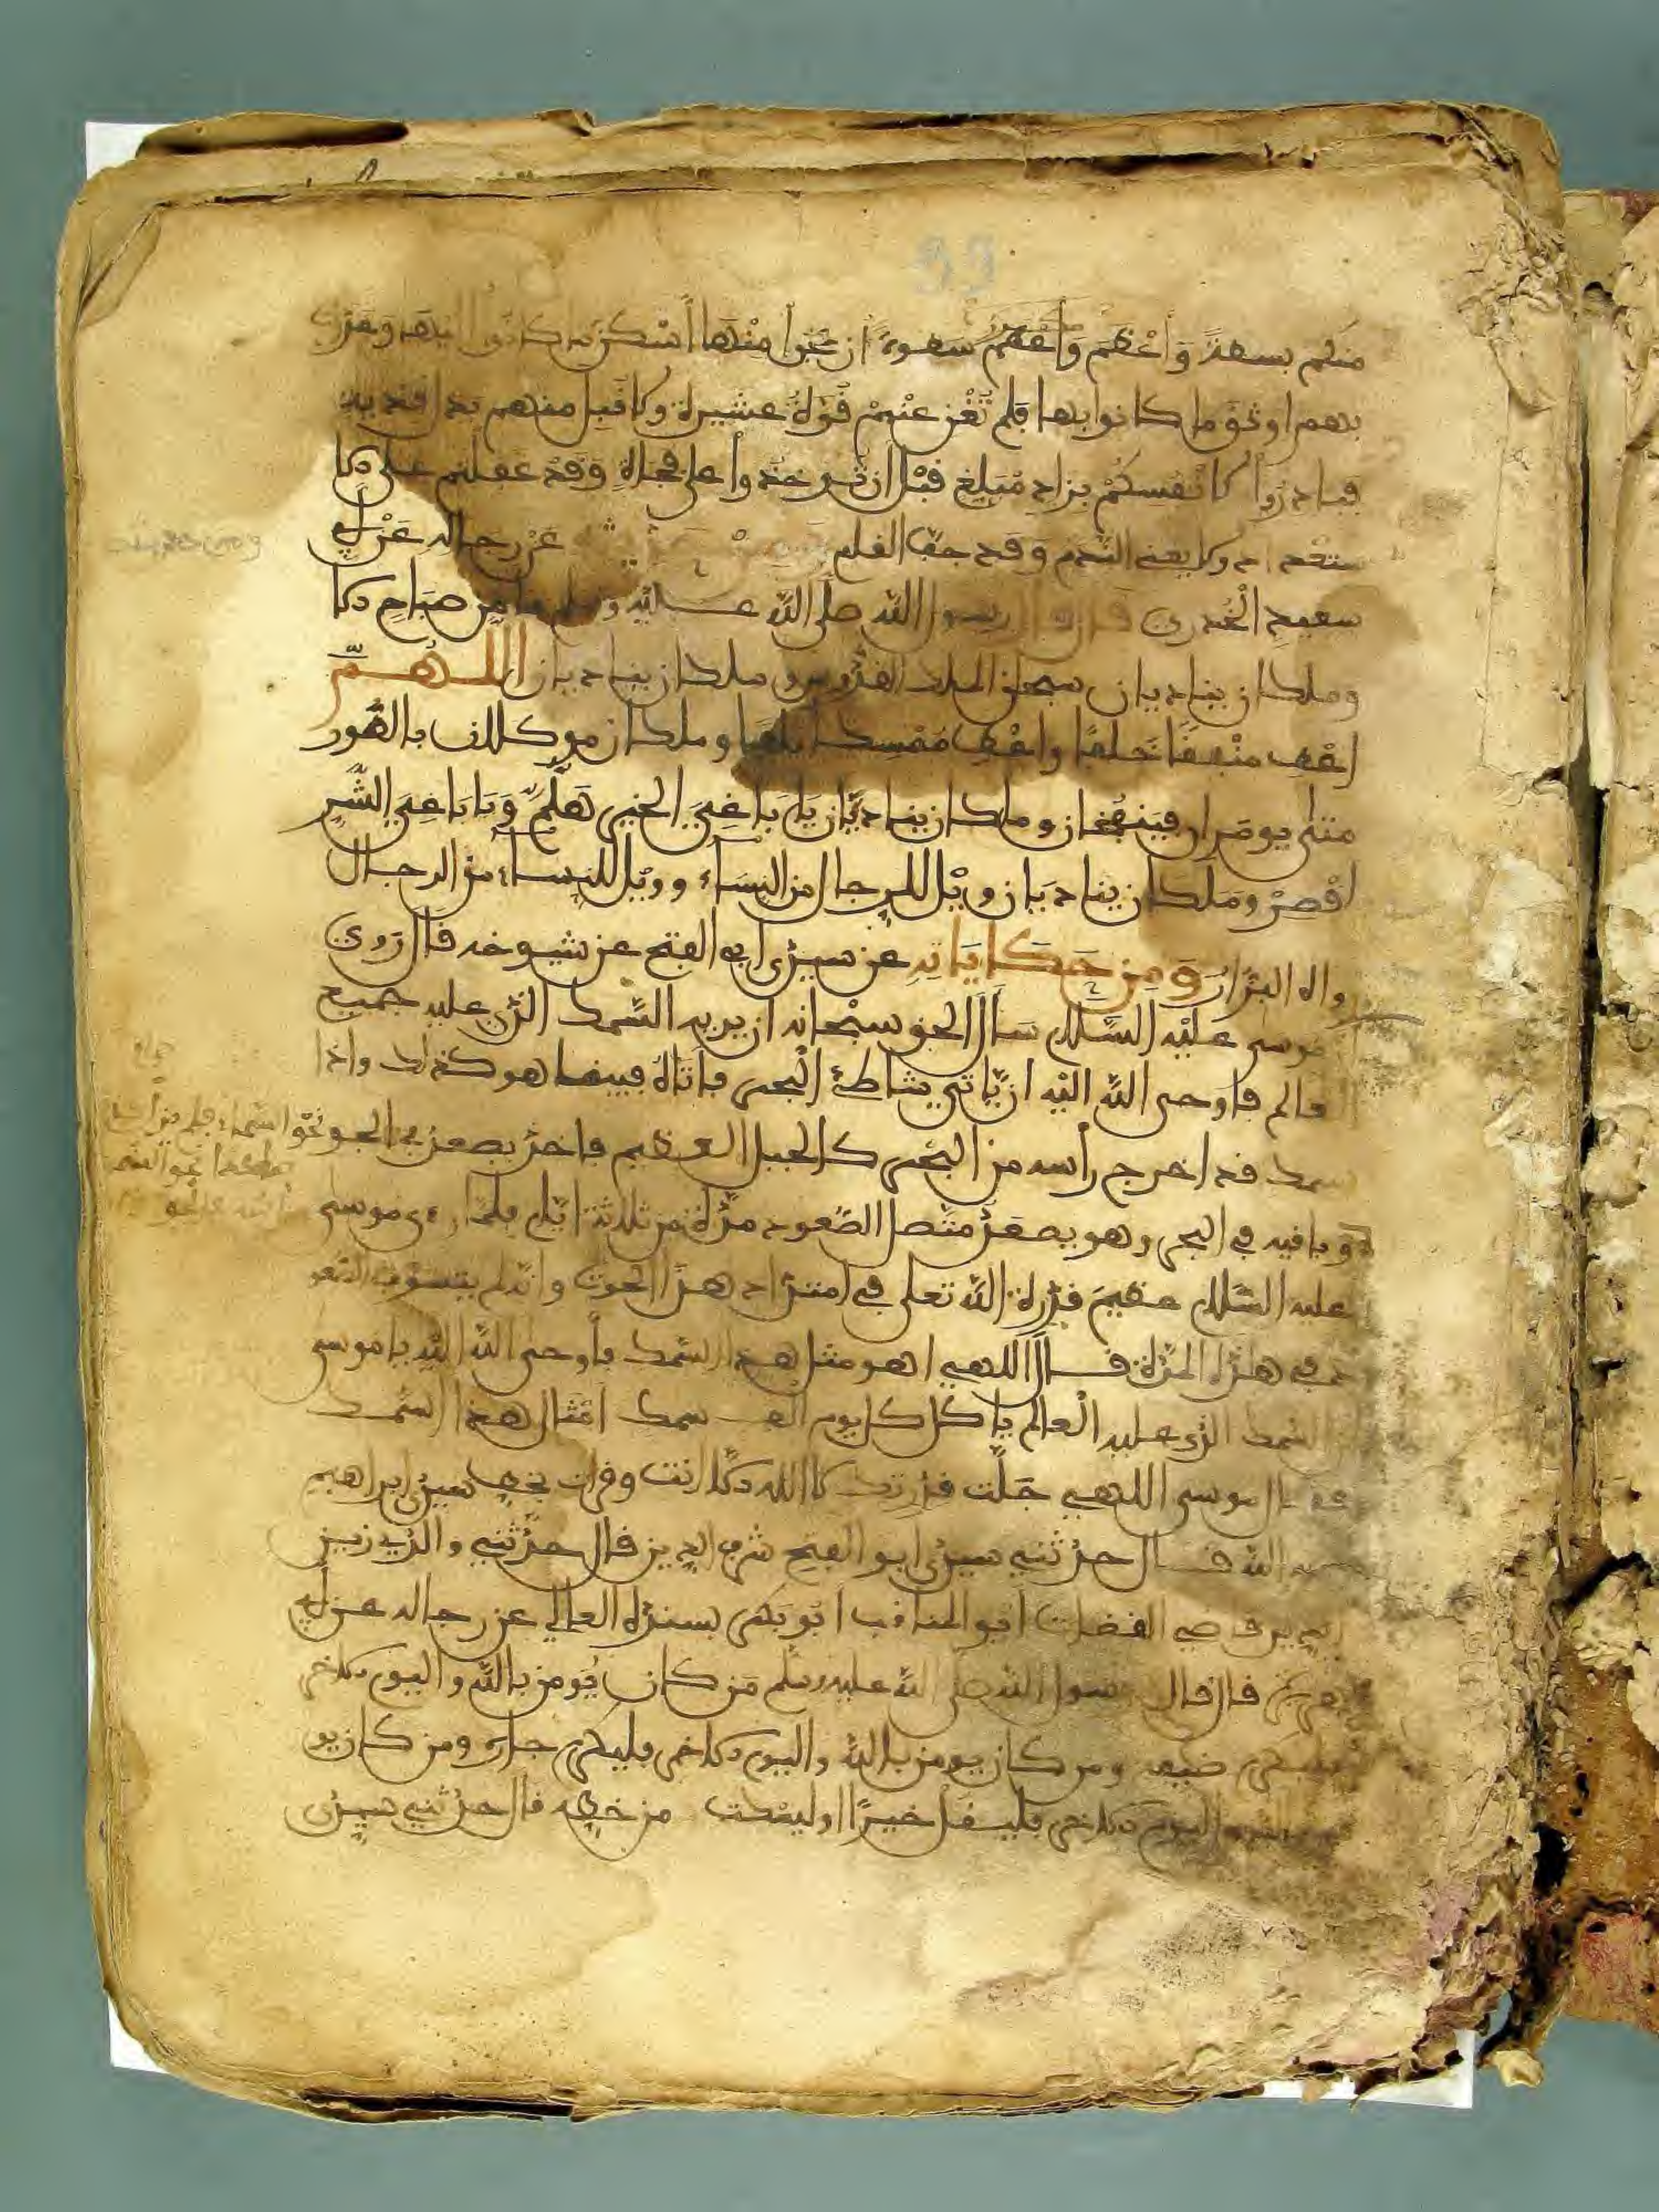 منكم بسطة وأعظم سطوة أزعجوا منها أسكن ما كانوا إليها وغدرت
بهم اوثق ما كانوا بها فلم تغن عنهم قوة عشيرة ولا قبل منهم بذل فدية
فبادروا لانفسكم بزاد مبلغ قبل ان توخذوا على فجاة وقد غفلتم على الا
ستعداد ولا يغني الندم وقد جف القلم عن رجاله عن ابي
سعيد الخدري قال قال رسول الله صلى الله عليه وسلم ما من صباح الا
وملكان يناديان سبحان الملك القدوس وملكان يناديان اللهم
اعط منفقا خلفا واعط ممسكا تلفا وملكان موكلان بالصور
متى يومران فينفخان وملكان يناديان يا باغي الخير هلم ويا باغي الشر
اقصر وملكان يناديان ويل للرجال من النساء وويل للنساء من الرجال
رواه البزار ومن حكاياته عن سيدي ابي الفتح عن شيوخه قال روي
موسى عليه السلام سال الحق سبحانه ان يريه السمك الذي عليه جميع
العالم فاوحى الله اليه ان ياتي بشاطئ البحر فاتاه فبينما هو كذلك واذا
سمك قد اخرج راسه من البحر كالجبل العظيم فاخذ يصعد في الجو نحو السماء فلم يزل
وباقيه في البحر وهو يصعد متصل الصعود مدة من ثلاثة ايام فلما رءى موسى
عليه السلام عظيم قدرة الله تعلى في امتداد هذا الحوت وانه لم يستوف الصعو
د في هذه المدة قال اللهي اهو مثل هذا السمك فأوحى الله اليه يا موسى
السمك الذي عليه العالم ياكل كل يوم الف سمك امثال هذا السمك
فقال موسى اللهي جلت قدرتك لا اله الا انت وقرات بخط سيدي ابراهيم
رحمه الله قال حدثني سيدي ابو الفتح شرف الدين قال حدثني والدي زين
الدين قاضي القضات ابو المناقب ابو بكر بسنده العالي عن رجاله عن ابي
هريرة قال قال رسول الله صلى الله عليه وسلم من كان يومن بالله واليوم الاخر
فليكرم ضيفه ومن كان يومن بالله واليوم الاخر فليكرم جاره ومن كان يو
من بالله واليوم الاخر فليقل خيرا او ليصمت من خطه قال حدثني سيدي